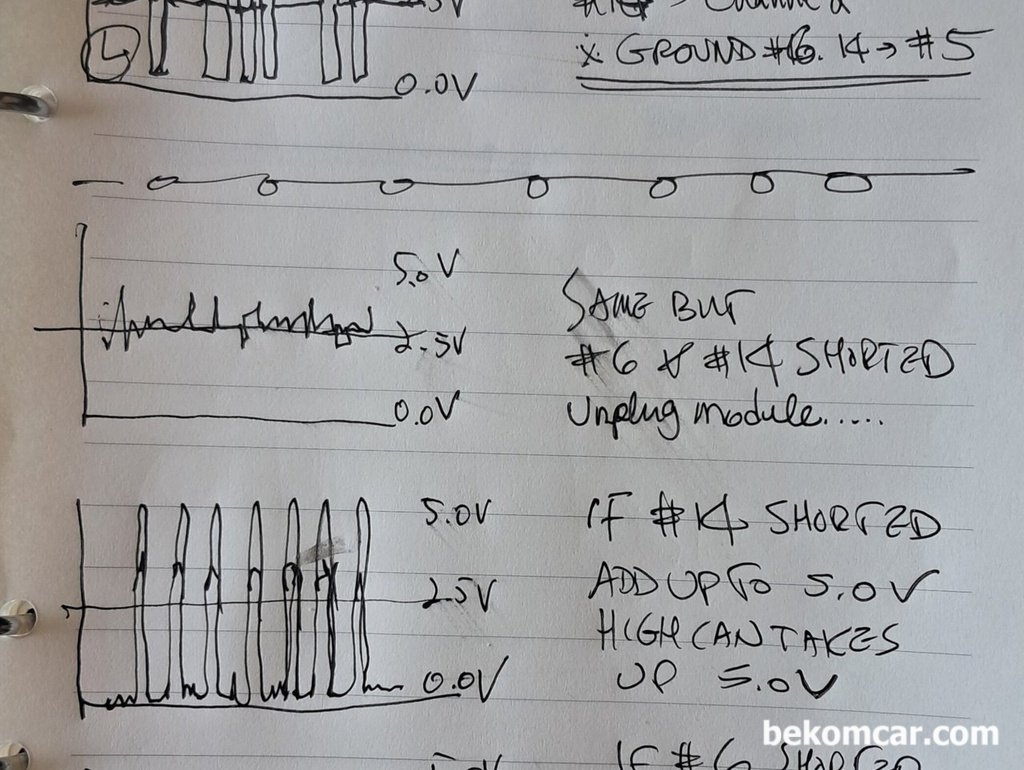 5V
Channel 2
L
※ GROUND #6. 14 → #5
0.0V
5.0V
SAME BUT
2.5V
#6 & #14 SHORTED
0.0V
Unplug module.....
5.0V
IF #14 SHORTED
2.5V
ADD UP TO 5.0V
HIGH CAN TAKES
0.0V
UP 5.0V
bekomcar.com
IF #6 SHORTED